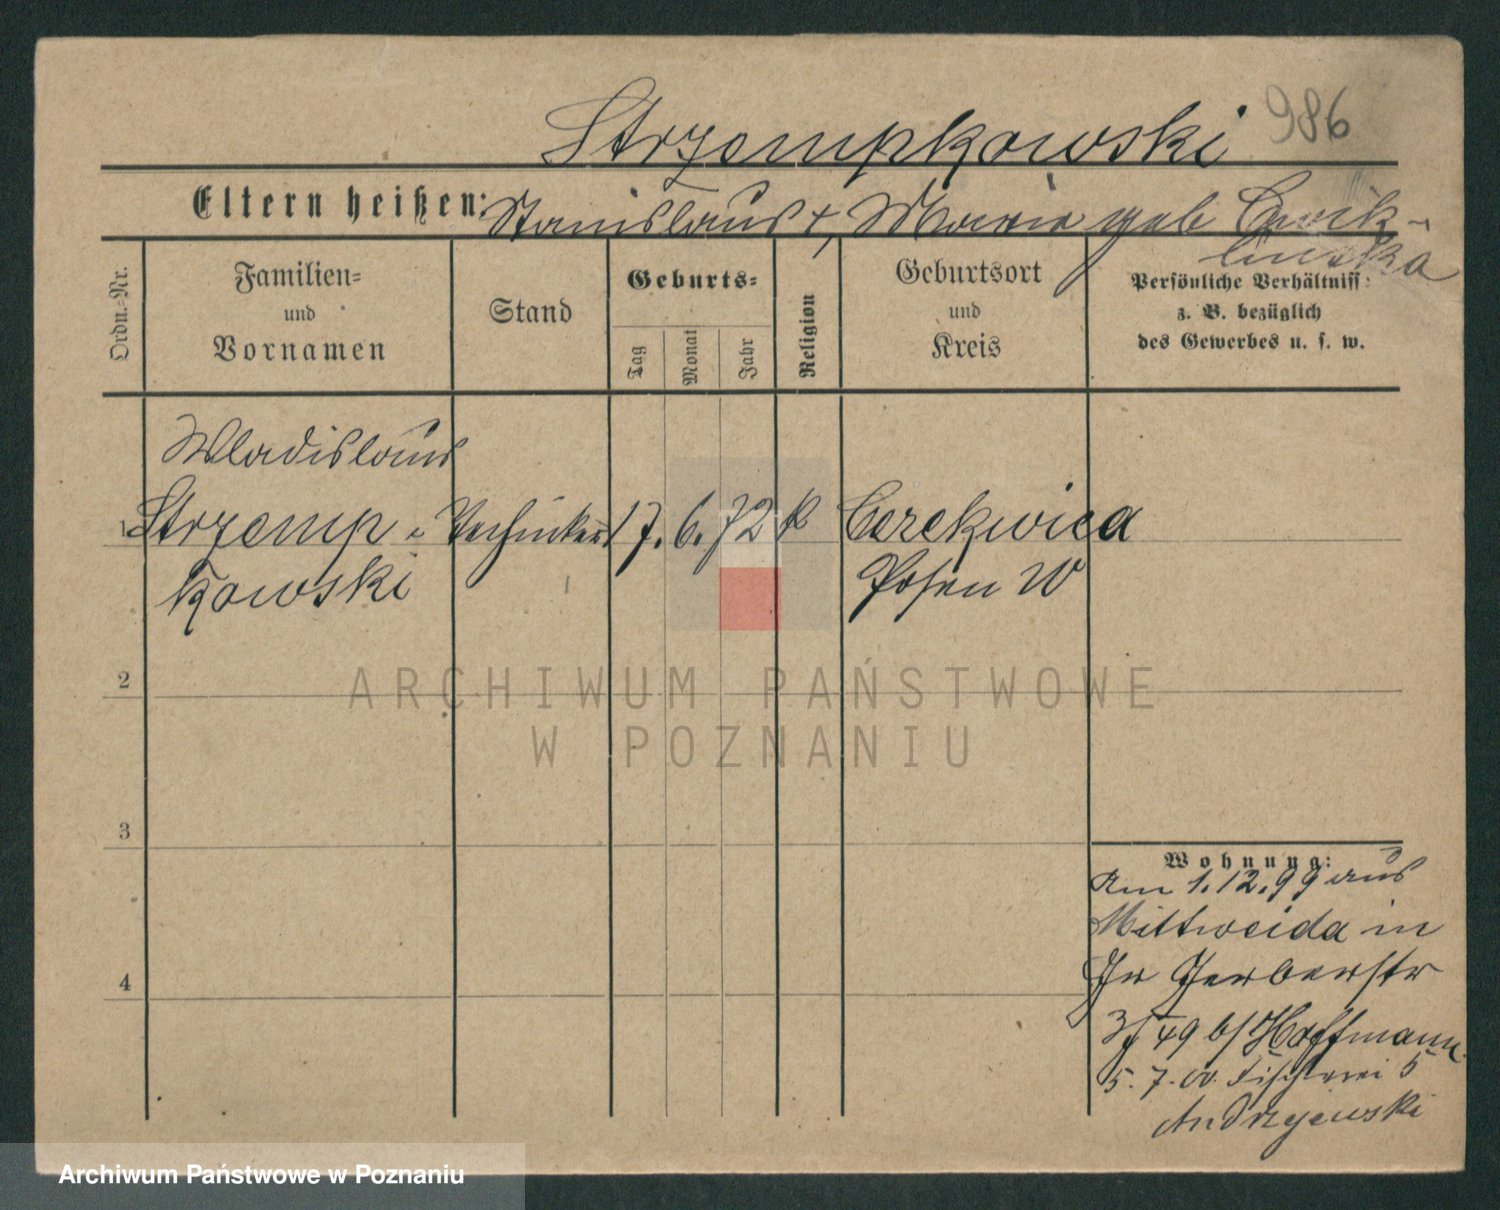 Strzempkowski 986
Eltern heißen: Stanislaus +, Maria geb Cwik-
linska
Ordn.-Nr.
Familien-
und
Vornamen
Stand
Geburts-
Tag
Monat
Jahr
Religion
Geburtsort
und
Kreis
Persönliche Verhältniss
z. B. bezüglich
des Gewerbes u. s. w.
Wladislaus
1 Strzemp- Techniker 17. 6. 72 k Cerekwica
kowski Posen W
2
3
4
Wohnung:
Am 1.12.99 aus
Mittweida in
Gr Gerberstr
49 b/ Hoffmann
5. 7. 00. Fischerei 5
Andrzejewski
ARCHIWUM PAŃSTWOWE
W POZNANIU
Archiwum Państwowe w Poznaniu